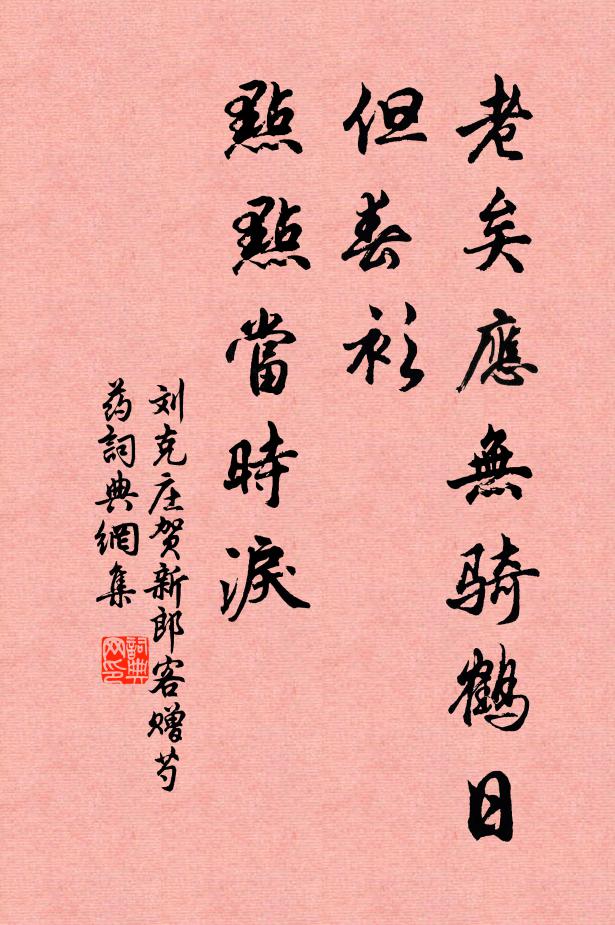 老矣應無騎鶴日
但春衫
點點當時淚
刘克庄贺新郎客赠芍
药詞典網集
詞典
网印